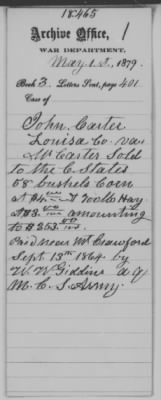 18465
Archive Office, 1
WAR DEPARTMENT,
May 1st, 1879.
Book 3. Letters Sent, page 401.
Case of
John Carter
Louisa Co. Va
Mr Carter Sold
to the C. States
58 bushels Corn
at $4 00/100 & Hay
at $3. 00/100 amounting
to $253. 00/100
Paid near Mt Crawford
Sept 13th 1864 by
W. W Giddins a q
M. C. S. Army.